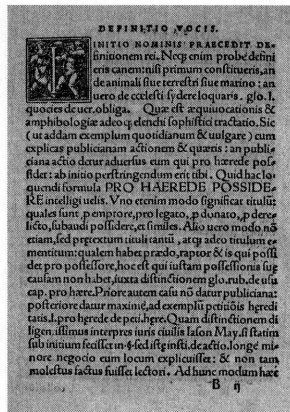 DEFINITIO VOCIS.
INITIO NOMINIS PRAECEDIT DE
finitionem rei. Neq; enim probe defini
eris canem: nisi primum constitueris, an
de animali siue terrestri siue marino: an
uero de cœlesti sydere loquaris. glo. I.
quocies de uer. obliga. Quæ est æquiuocationis &
amphibologiæ adeoq; elenchi sophistici tractatio. Sic
(ut addam exemplum quotidianum & uulgare) cum
explicas publicianam actionem & quæris: an publi,
ciana actio detur aduersus eum qui pro hærede pos,
sidet: ab initio perstringendum erit tibi. Quid hac lo,
quendi formula PRO HAEREDE POSSIDE,
RE intelligi uelis. Vno etenim modo significat titulū:
quales sunt, p emptore, pro legato, p donato, p dere,
licto, subaudi possidere, et similes. Alio uero modo nō
etiam, sed prętextum tituli tantū, atq; adeo titulum e,
mentitum: qualem habet prædo, raptor & is qui possi
det pro possessore, hoc est qui iustam possessionis suę
causam non habet, iuxta distinctionem glo. rub. de usu
cap. pro hære. Priore autem casu nō datur publiciana:
posteriore datur maxime, ad exemplū petitiōis heredi
tatis. I. pro herede de peti. here. Quam distinctionem di
ligentissimus interpres iuris ciuilis Iason May. si statim
sub initium fecisset in §. sed iste insti. de actio. longe mi,
nore negocio eum locum explicuisset: & non tam
molestus factus fuisset lectori. Ad hunc modum hæc
B ij